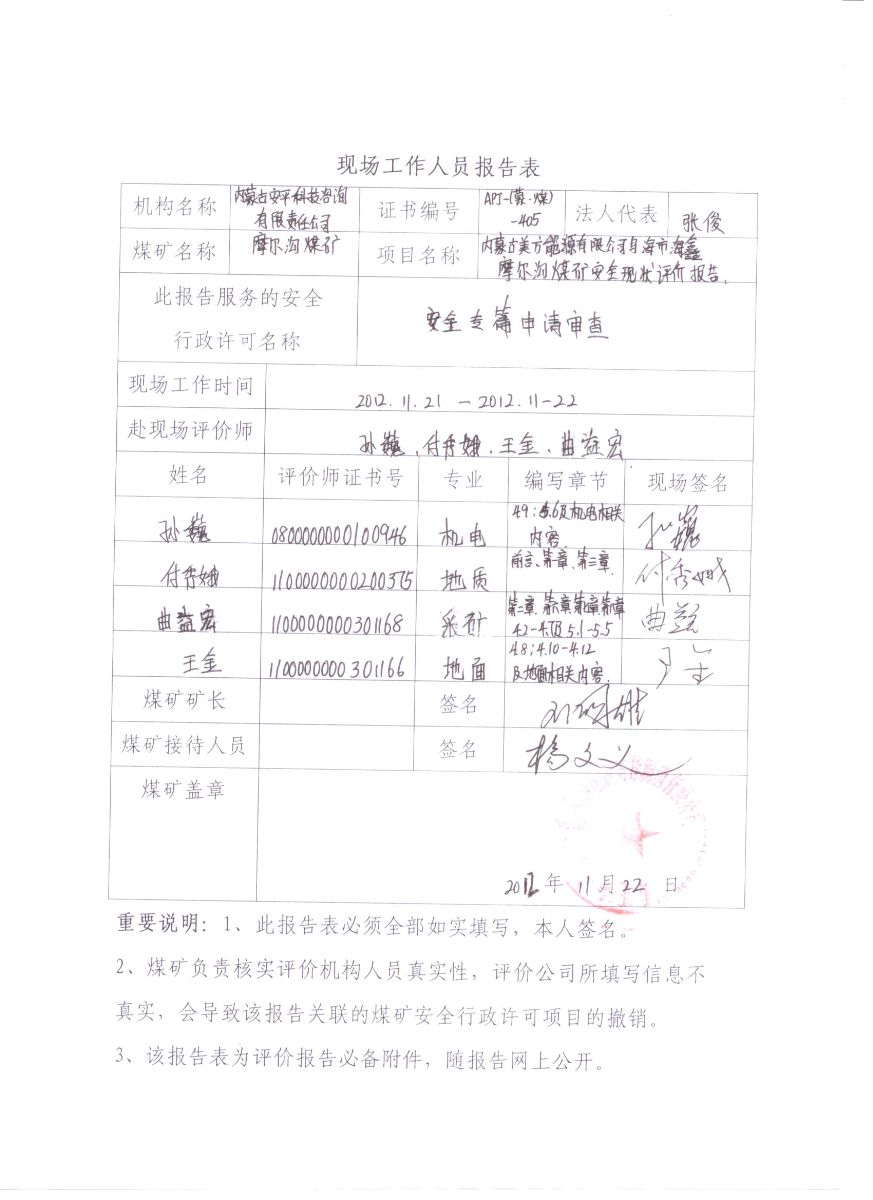 现场工作人员报告表
机构名称 内蒙古安平科技咨询 证书编号 APJ-(蒙·煤) 法人代表 张俊
有限责任公司 -405
煤矿名称 摩尔沟煤矿 项目名称 内蒙古美方能源有限公司乌海市海鑫
摩尔沟煤矿安全现状评价报告.
此报告服务的安全
行政许可名称 安全专篇申请审查
现场工作时间 2012.11.21 — 2012.11-22
赴现场评价师 孙巍、付秀娥、王金、曲益宏
姓名 评价师证书号 专业 编写章节 现场签名
孙巍 0800000000100946 机电 4.9; 5.6及机电相关 孙巍
内容.
付秀娥 1100000000200375 地质 前言、第一章、第三章. 付秀娥
曲益宏 1100000000301168 采矿 第二章、第六章第七章第八章 曲益
4.2-4.7及5.1-5.5
王金 1100000000301166 地面 4.8;4.10-4.12 王金
及地面相关内容.
煤矿矿长 签名
煤矿接待人员 签名 杨文义
煤矿盖章
2012年11月22日
重要说明：1、此报告表必须全部如实填写，本人签名。
2、煤矿负责核实评价机构人员真实性，评价公司所填写信息不
真实，会导致该报告关联的煤矿安全行政许可项目的撤销。
3、该报告表为评价报告必备附件，随报告网上公开。